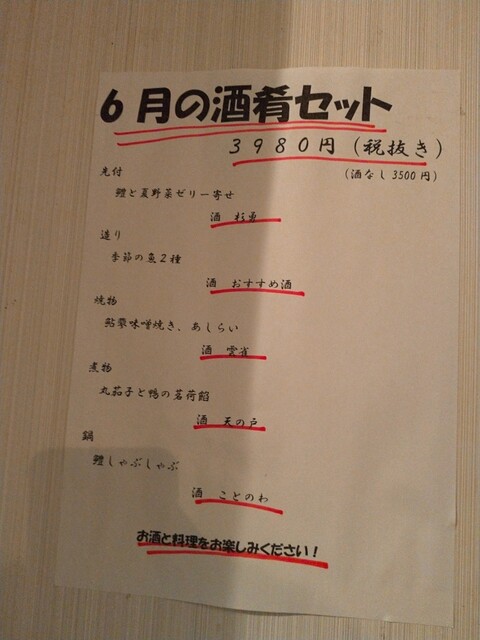 6月の酒肴セット
3980円(税抜き)
(酒なし3500円)
先付
鱧と夏野菜ゼリー寄せ
酒 杉勇
造り
季節の魚2種
酒 おすすめ酒
焼物
鮎蓼味噌焼き、あしらい
酒 雲雀
煮物
丸茄子と鴨の茗荷餡
酒 天の戸
鍋
鱧しゃぶしゃぶ
酒 ことのわ
お酒と料理をお楽しみください!